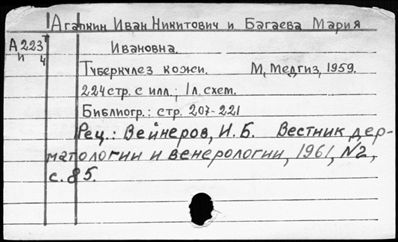 Агапкин Иван Никитович и Багаева Мария
А223 Ивановна.
и 4
Туберкулез кожи. М, Медгиз, 1959.
224 стр. с илл.; 1 л. схем.
Библиогр.: стр. 207-221
Рец.: Вейнеров, И.Б. Вестник дер-
матологии и венерологии, 1961, №2,
с. 85.